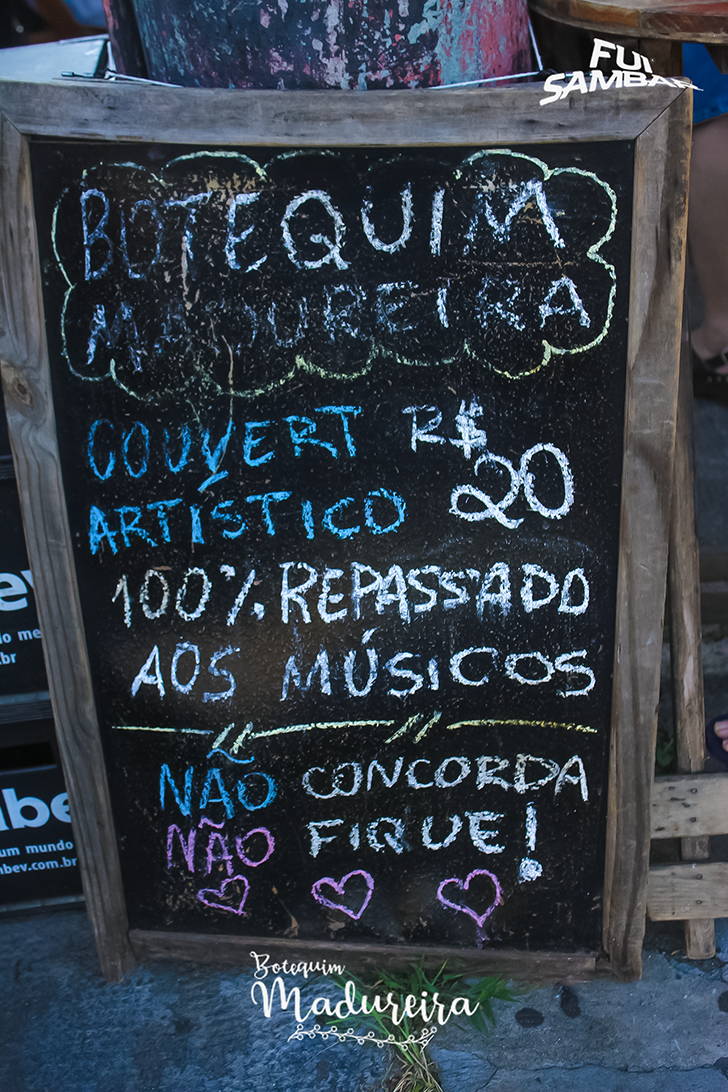 FUI
SAMBAR
BOTEQUIM
MADUREIRA
COUVERT R$
ARTÍSTICO 20
100% REPASSADO
AOS MÚSICOS
NÃO CONCORDA
NÃO FIQUE!
um mundo
mbev.com.br
Botequim
Madureira